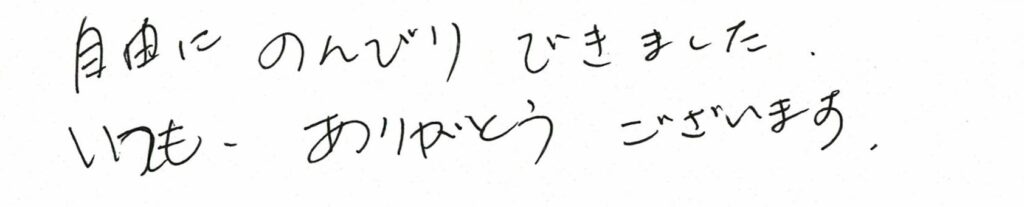 自由に のんびり できました.
いつも- ありがとう ございます.